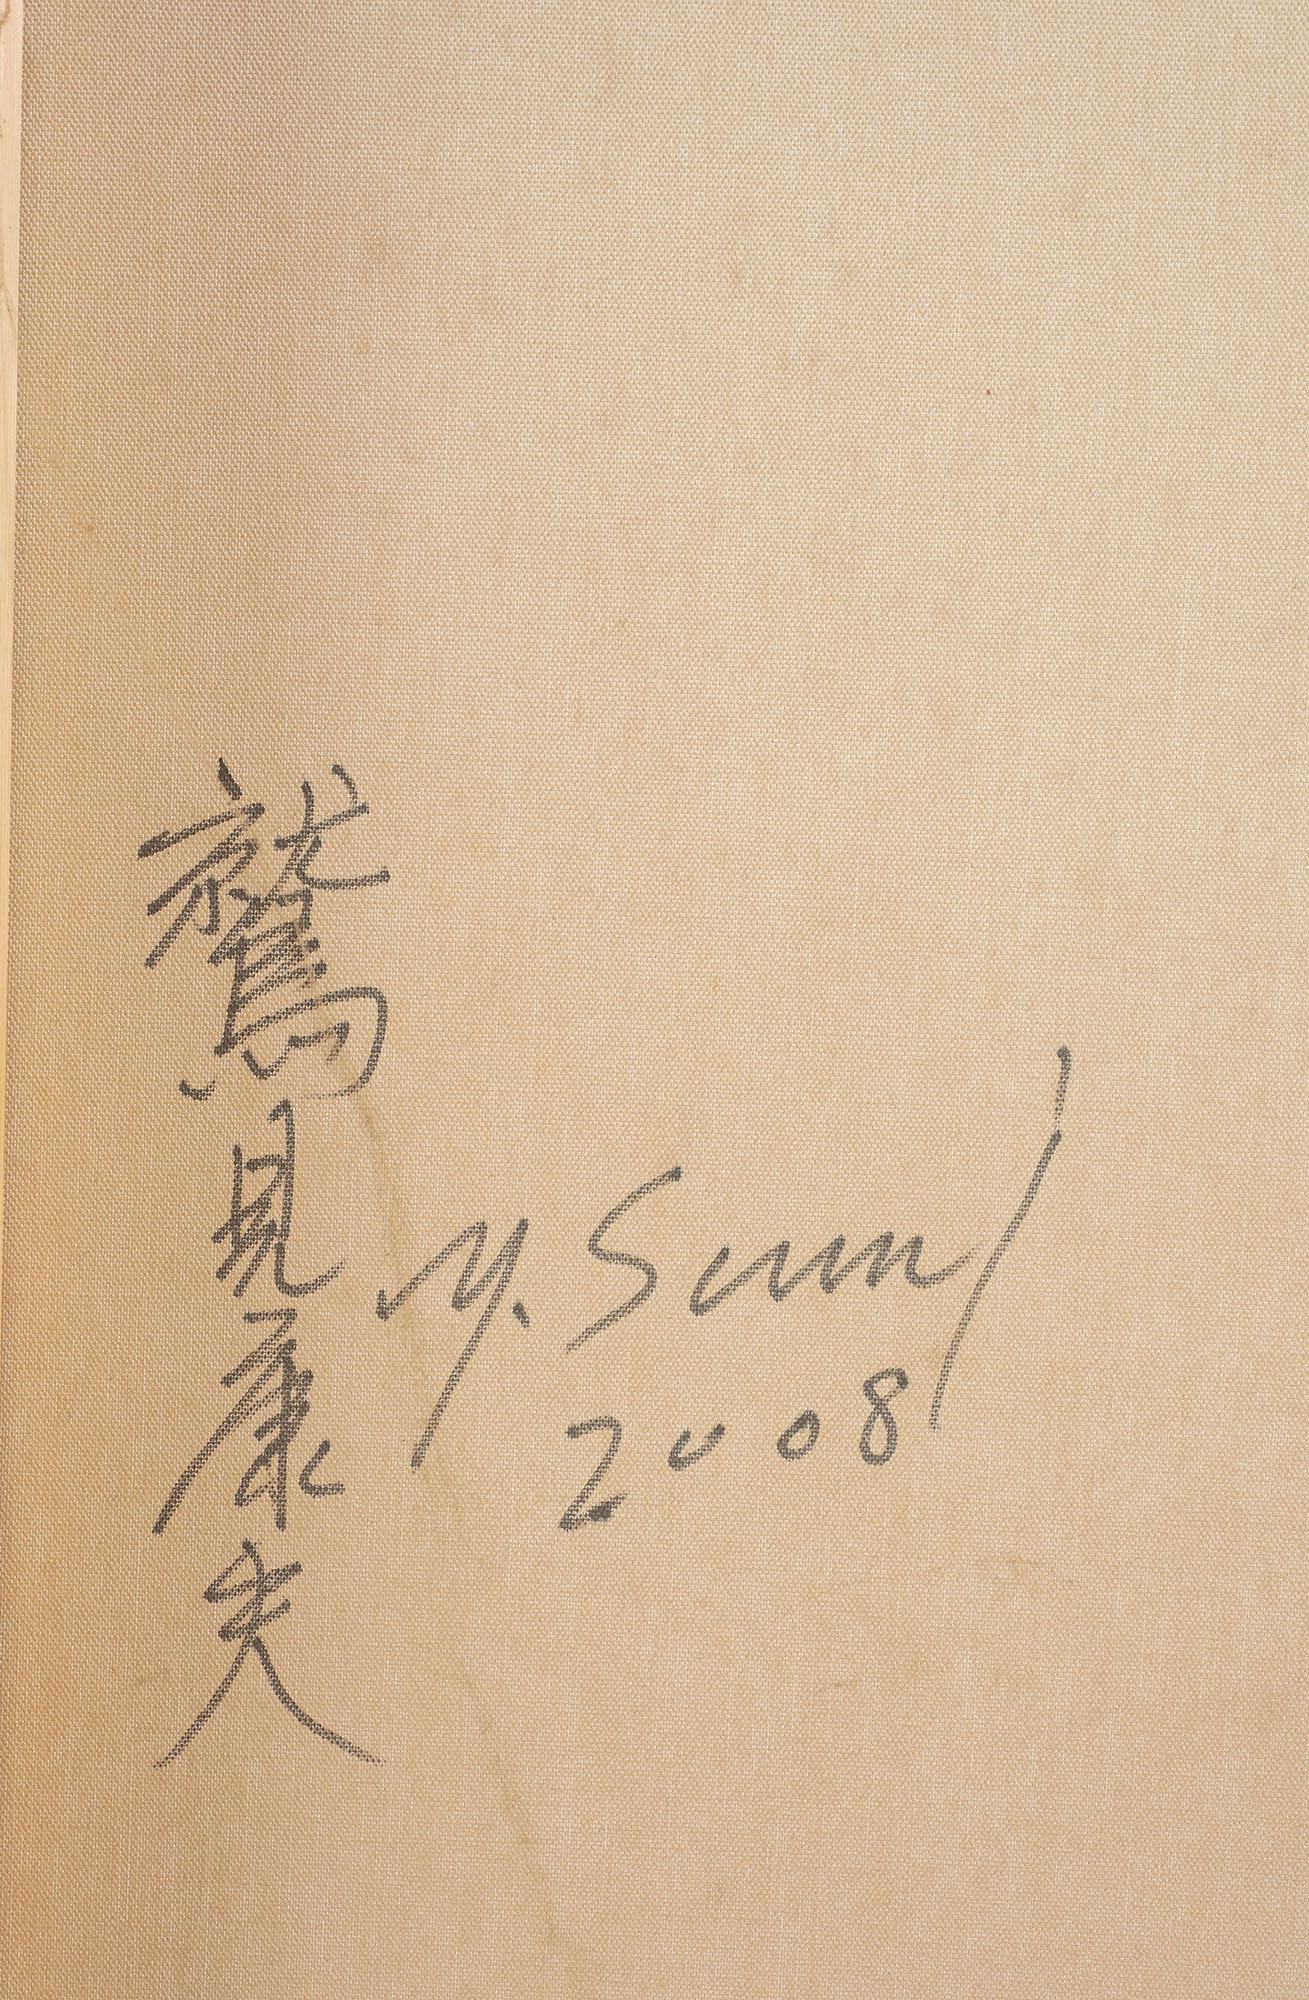 鷲見康夫
Y. Sumi
2008